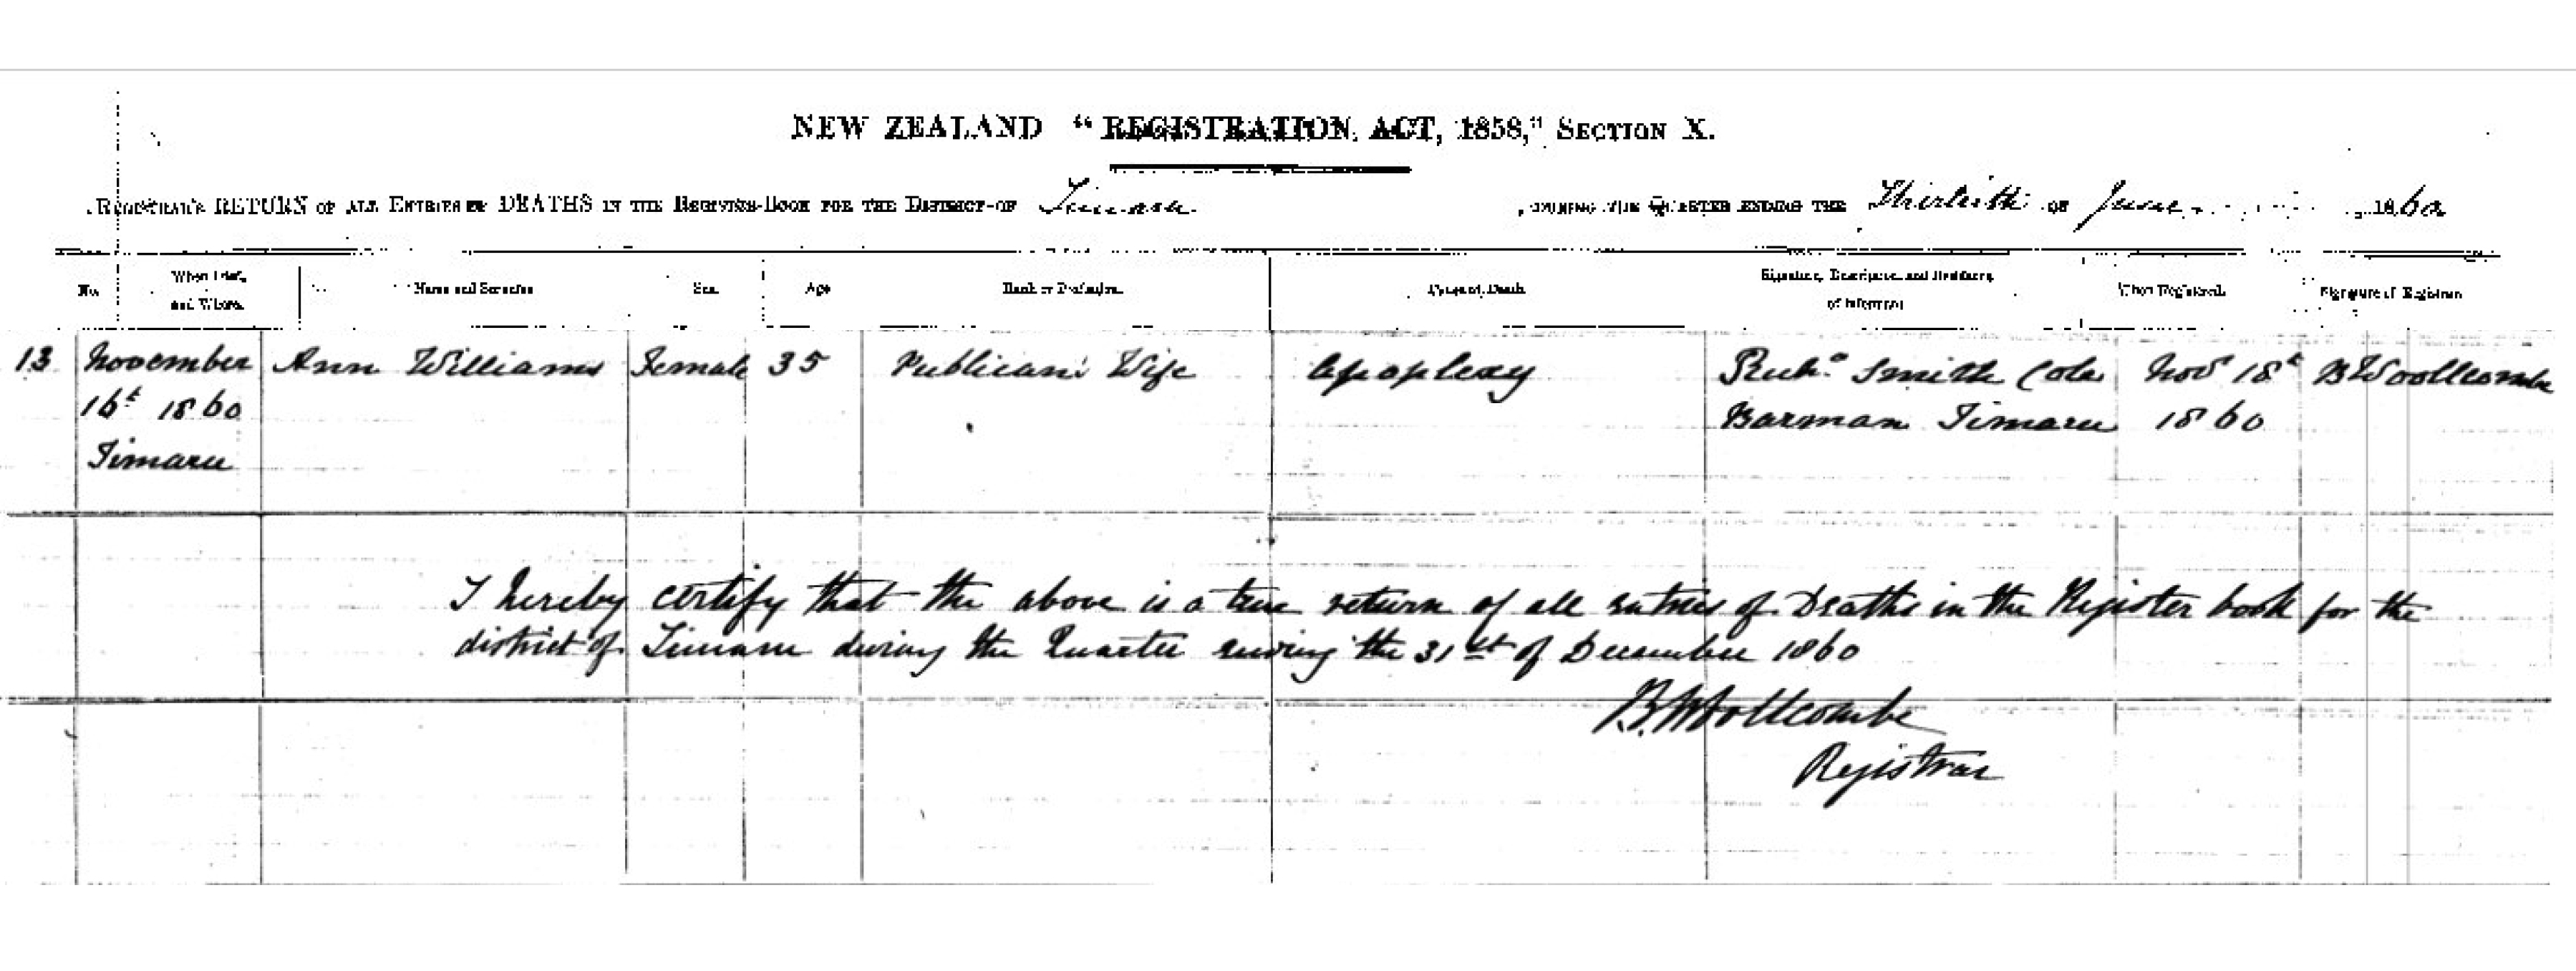 NEW ZEALAND "REGISTRATION ACT, 1858," SECTION X.
REGISTRAR'S RETURN OF ALL ENTRIES OF DEATHS IN THE REGISTER-BOOK FOR THE DISTRICT OF Timaru , DURING THE QUARTER ENDING THE Thirtieth OF June , 1860
No. When Died, and Where. Name and Surname Sex Age Rank or Profession Cause of Death Signature, Description, and Residence of Informant When Registered Signature of Registrar
13 November Ann Williams Female 35 Publicans Wife Apoplexy Richd Smith Cole Novr 18t B Woollcombe
16t 1860 Barman Timaru 1860
Timaru
I hereby certify that the above is a true return of all entries of Deaths in the Register book for the
district of Timaru during the Quarter ending the 31st of December 1860
B. Woollcombe
Registrar